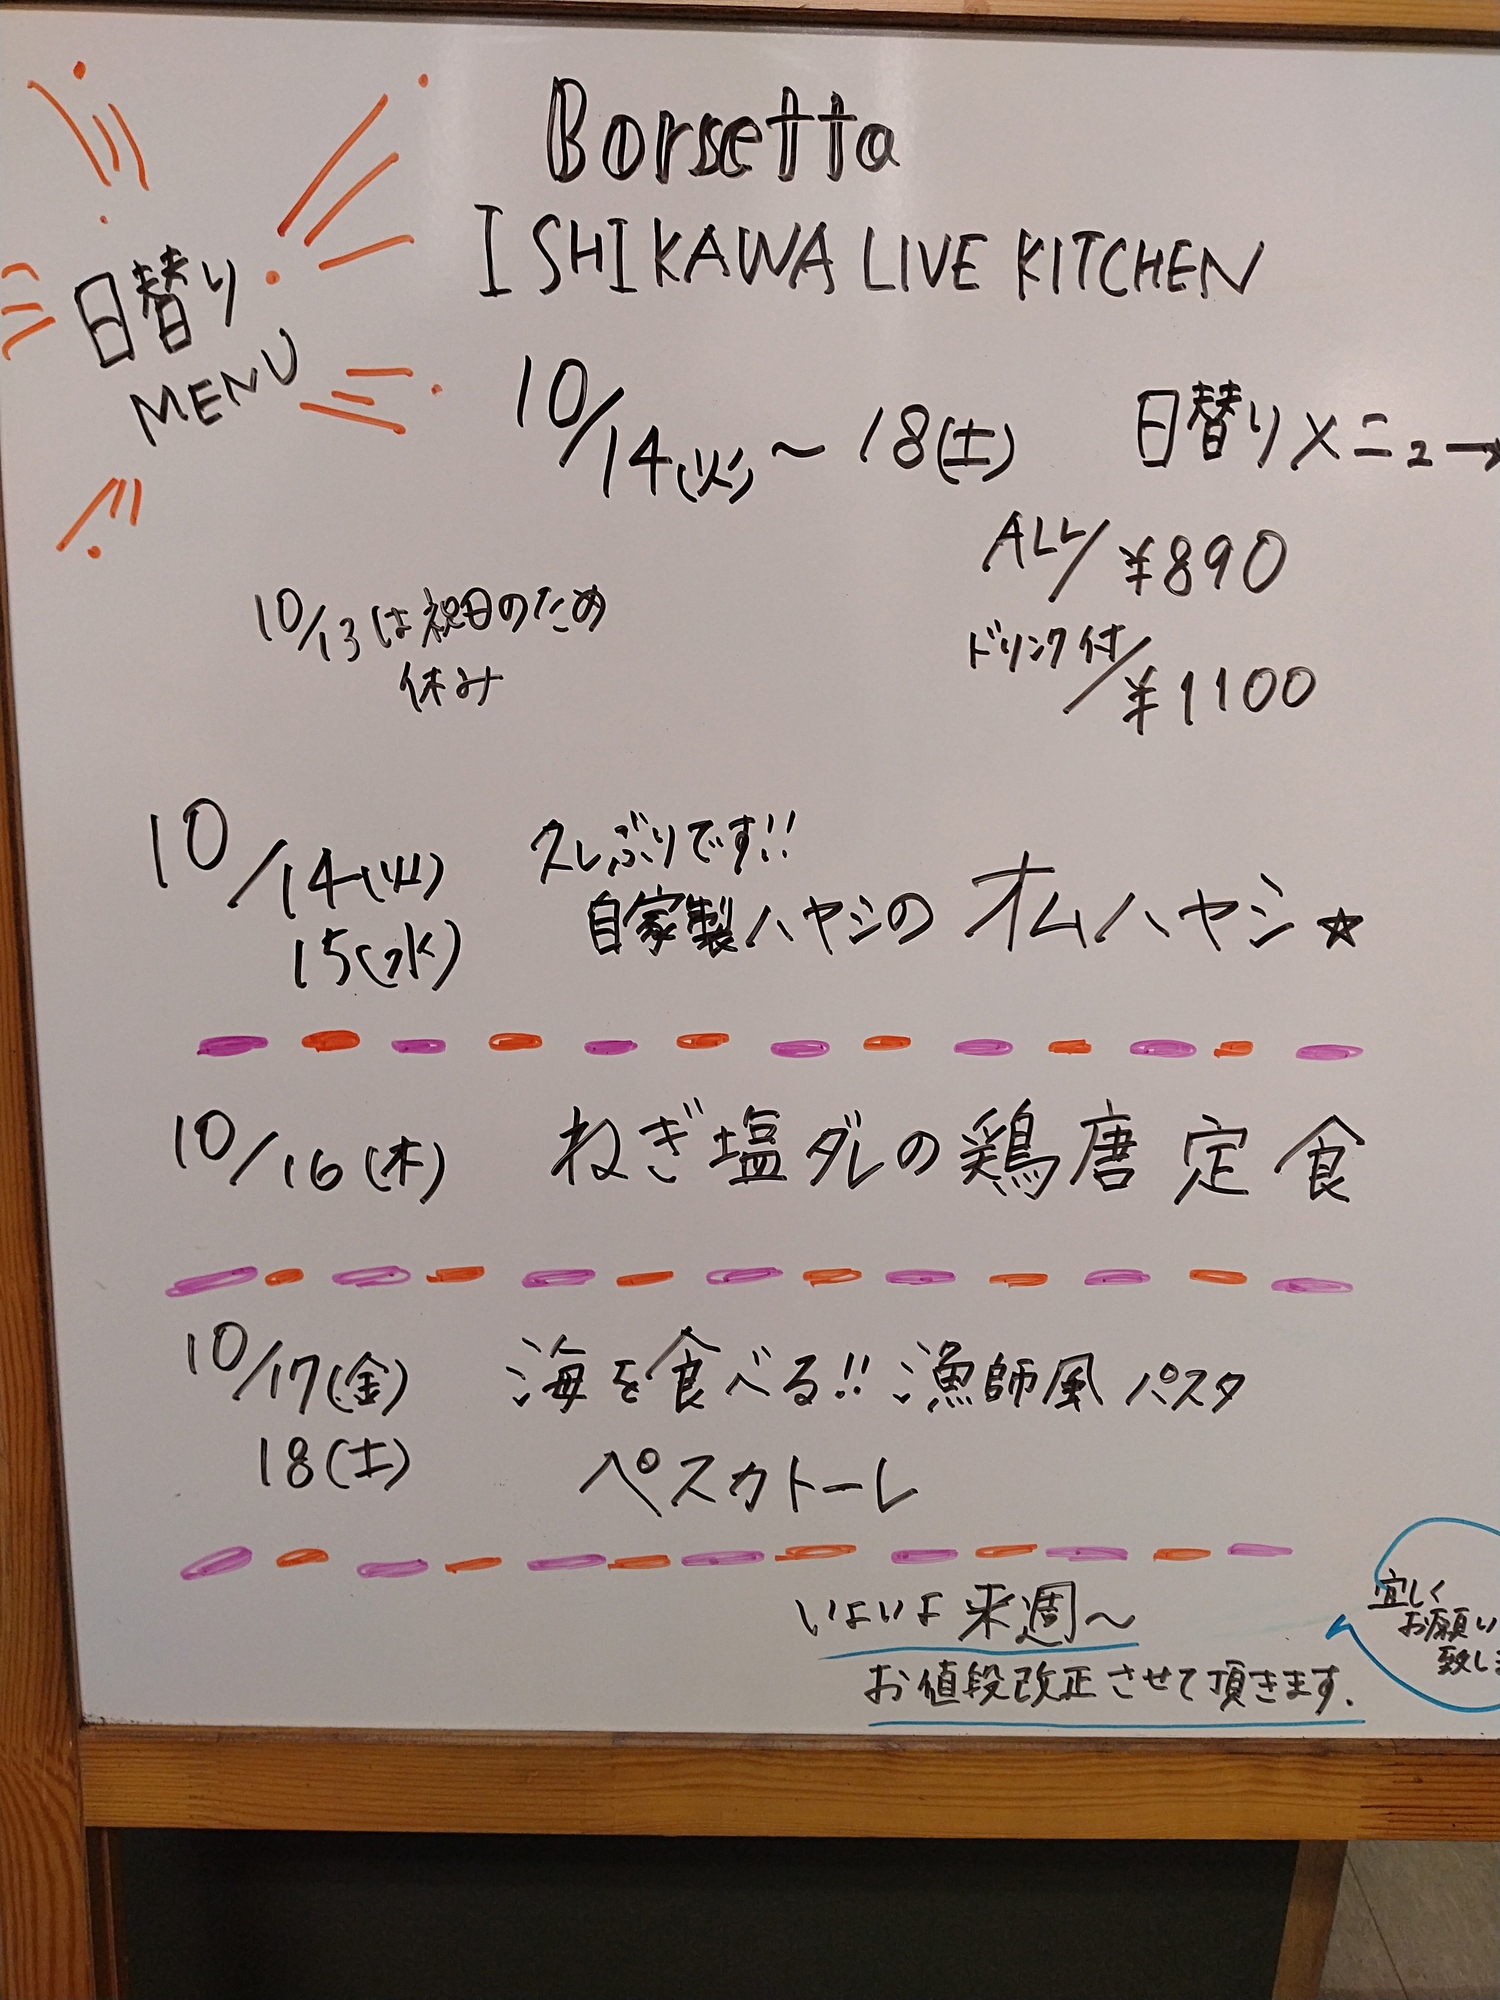 Borsetta
ISHIKAWA LIVE KITCHEN
日替り
MENU
10/14(火)〜18(土) 日替りメニュー→
ALL/¥890
ドリンク付/¥1100
10/13は祝日のため
休み
10/14(火)
15(水)
久しぶりです!!
自家製ハヤシの オムハヤシ☆
10/16(木) ねぎ塩ダレの鶏唐定食
10/17(金) 海を食べる!!漁師風パスタ
18(土) ペスカトーレ
いよいよ来週〜
お値段改正させて頂きます.
宜しく
お願い
致しま